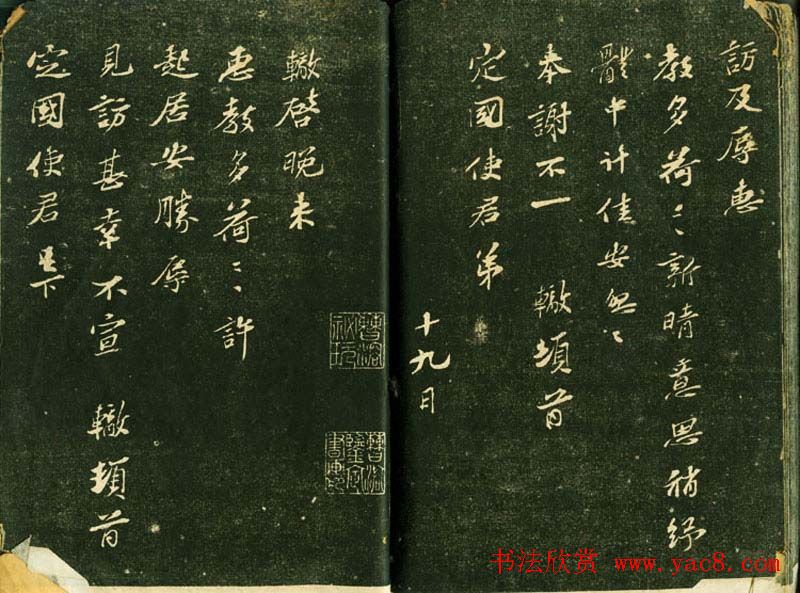 訪及辱惠
教多荷〻新晴意思稍紓
體中計佳安勉〻
奉謝不一 轍頓首
定國使君弟
十九日
轍啓晚来
惠教多荷〻許
起居安勝辱
見訪甚幸不宣 轍頓首
定國使君足下
曹溶
曹溶
鑒定
書畫印
书法欣赏 www.yac8.com